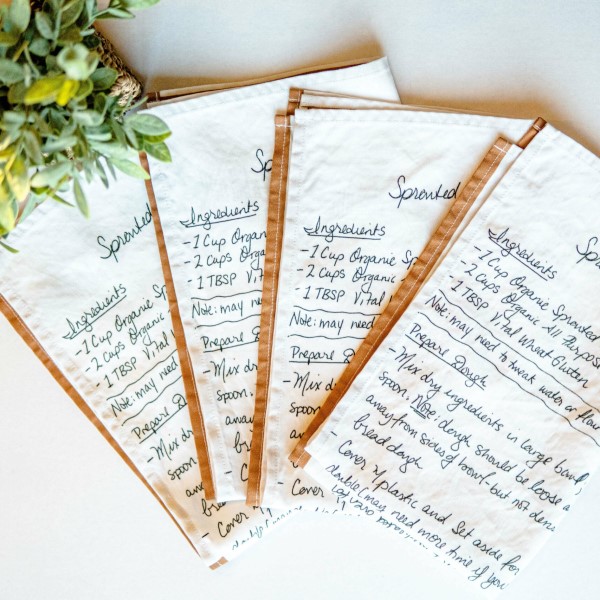 Sprouted
Ingredients
-1 Cup Organic Sp
-2 Cups Organic
-1 TBSP Vital
Note: may need
Prepare Dough
-Mix dry
spoon.
away
bread
-Cover
Sp
Ingredients
-1 Cup Organ
-2 Cups Orga
-1 TBSP Vita
Note: may ne
Prepare D
-Mix dr
spoon.
away
brea
-Cove
Sprouted
Ingredients
-1 Cup Organic Sp
-2 Cups Organic
-1 TBSP Vital
Note: may need
Prepare Dough
-Mix dr
spoon.
away
bre
-Cover
Spro
Ingredients
-1 Cup Organic Sprouted
-2 Cups Organic All Purpos
-1 TBSP Vital Wheat Gluten
Note: may need to tweak water or flour
Prepare Dough
-Mix dry ingredients in large bowl
spoon. Note: dough should be loose a
away from sides of bowl but not dens
bread dough
-Cover w/plastic and set aside for
double (may need more time if you